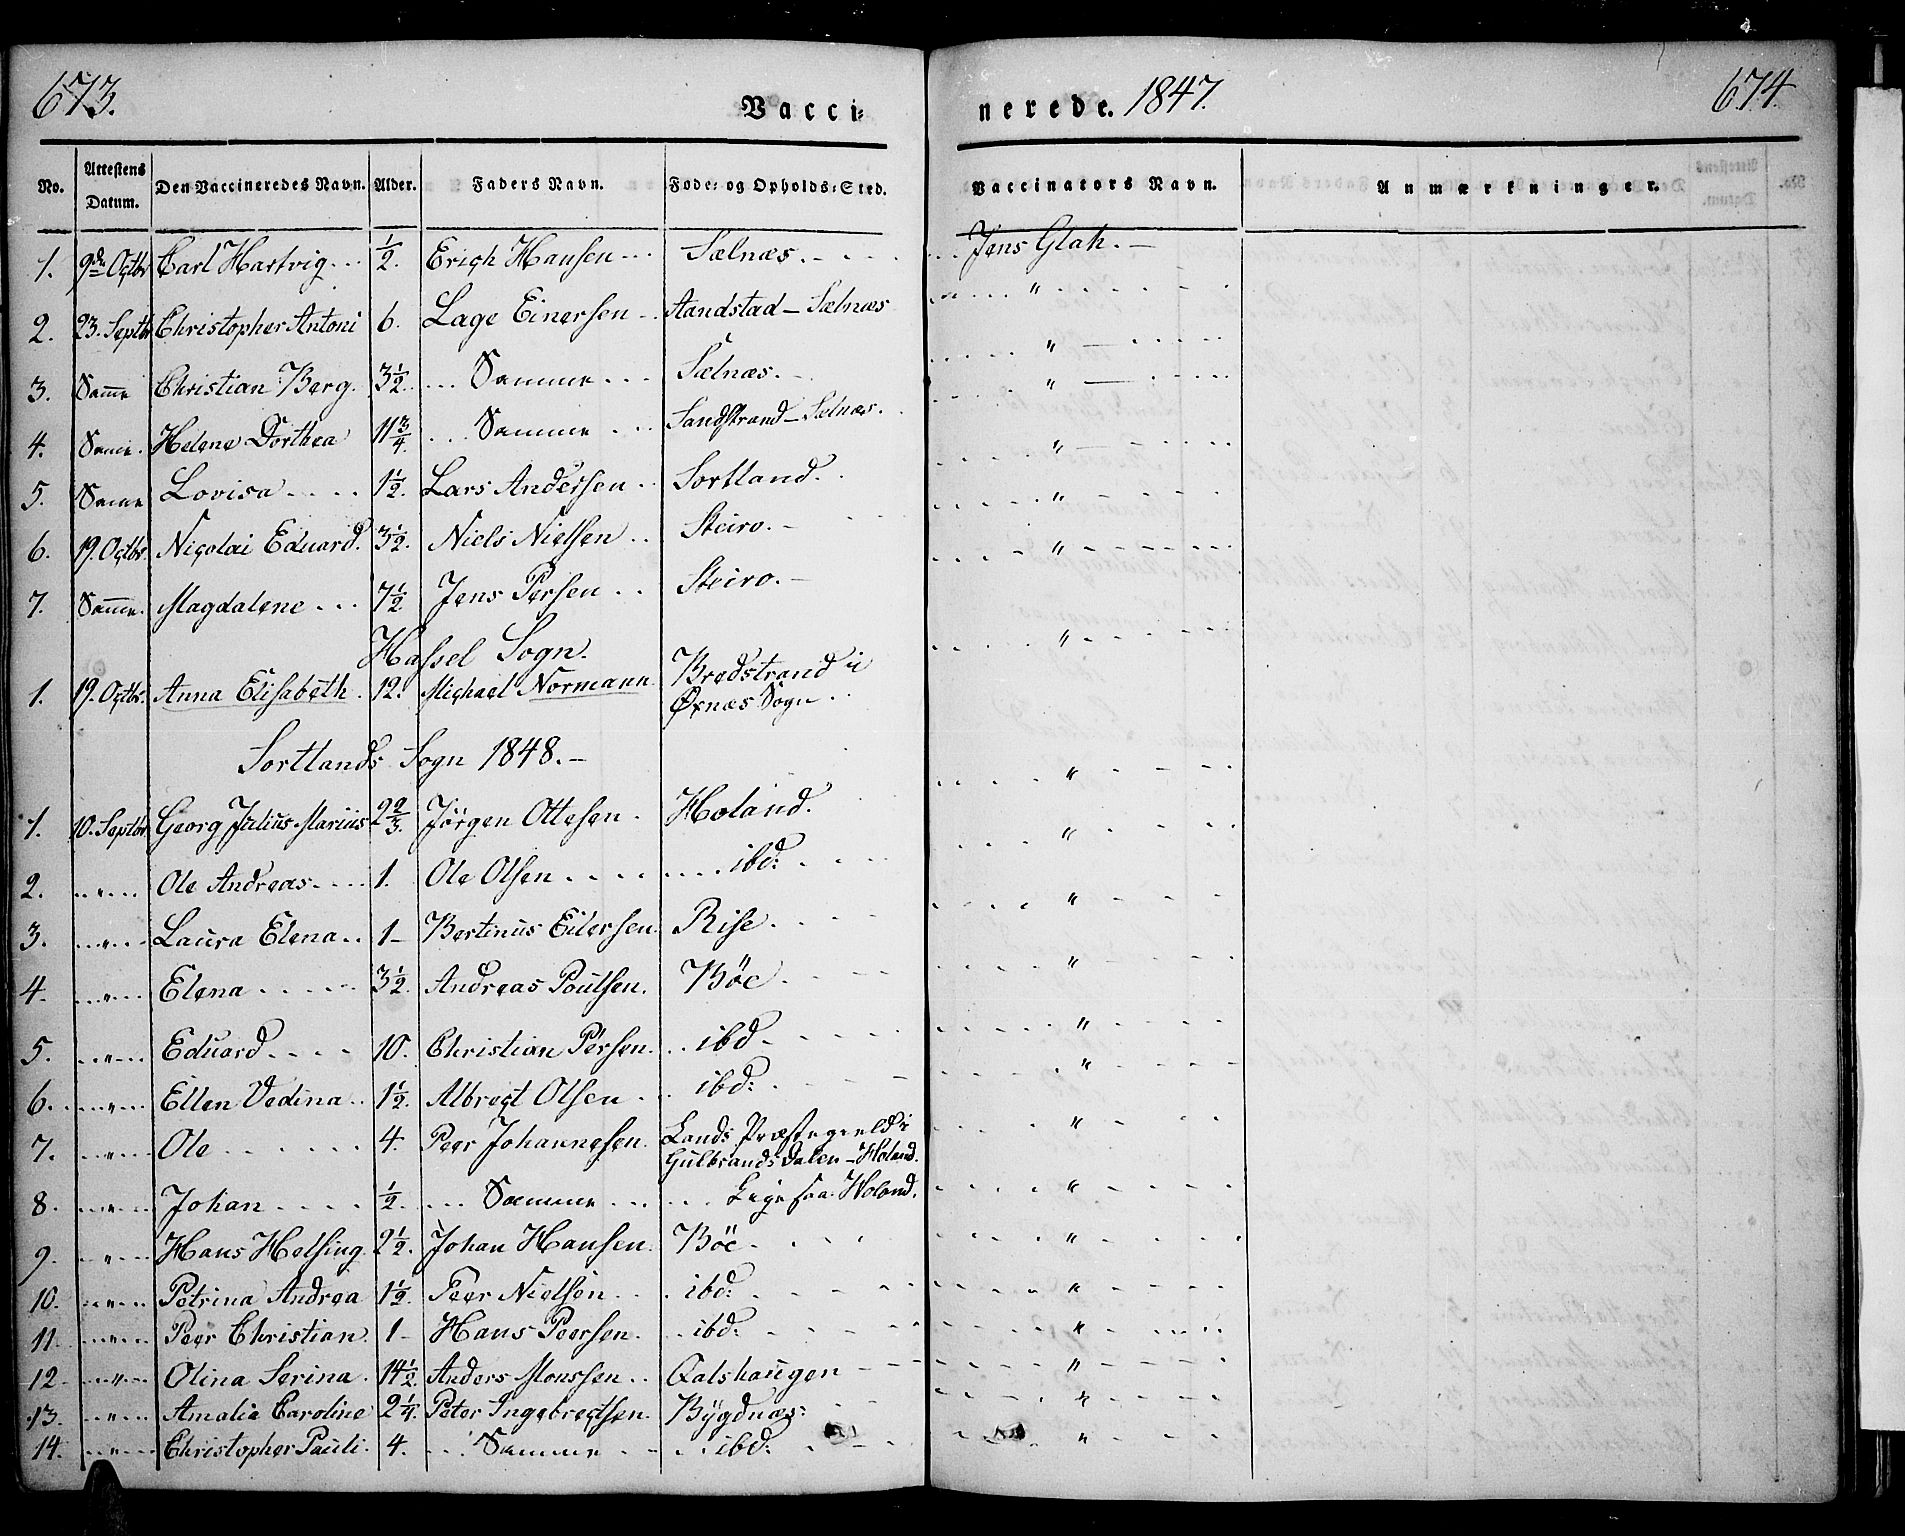 673.
Vacci=
nerede. 1847.
674
No.
Attestens Datum.
Den Vaccineredes Navn.
Alder.
Faders Navn.
Føde= og Opholds=Sted.
Vaccinators Navn.
Anmærkninger.
1. 9de Octbr Carl Hartvig... 1/2. Erich Hansen... Sælnæs.- ... Jens Glah.-
2. 23. Septbr Christopher Antoni 6. Lage Einersen.. Aandstad - Sælnæs "
3. Samme Christian Berg. 3 1/2. ... Samme... Sælnæs.- "
4. Samme. Helene Dorthea 11 3/4. ... Samme... Sandstrand - Sælnæs. "
5. Samme Lovisa.... 1 1/2. Lars Andersen.. Sortland.. "
6. 19. Octbr. Nicolai Eduard. 3 1/2. Niels Nielsen.. Steiro.- "
7. Samme. Magdalene... 7 1/2 Jens Persen.. Steiro.- "
Hassel Sogn.
1. 19. Octbr. Anna Elisabeth. 12. Michael Normann. Bredstrand i Øxnæs Sogn.. "
Sortlands Sogn 1848.-
1. 10. Septbr Georg Julius Marius 2 2/3. Jørgen Ottesen. Holand. "
2. " Ole Andreas.... 1. Ole Olsen.... .... ibd: "
3. " Laura Elena.. 1- Bertinus Eilersen. Rise. "
4. " Elena..... 3 1/2. Andreas Poulsen. Böe "
5. " Eduard.... 10. Christian Persen. .. ibd- "
6. " Ellen Vedina.. 1 1/2. Albregt Olsen.. ibd: "
7. " Ole...... 4. Peer Johannesen. Lands Præstegield i Gulbrandsdalen - Holand. "
8. " Johan.... 1/2. ... Samme... ... Ligesaa Holand. "
9. " Hans Helsing. 2 1/2. Johan Hansen. Böe- "
10. " Petrina Andrea 1 1/2. Peer Nielsen... ibd: "
11. " Peer Christian. 1- Hans Peersen. .. ibd: "
12. " Olina Serina. 14 1/2. Anders Monssen.. Qalshaugen "
13. " Amalia Caroline 2 1/4. Peter Ingebregtsen. Bÿgdnæs: "
14. " Christopher Pauli. 4. ... Samme.. .. ibd: "